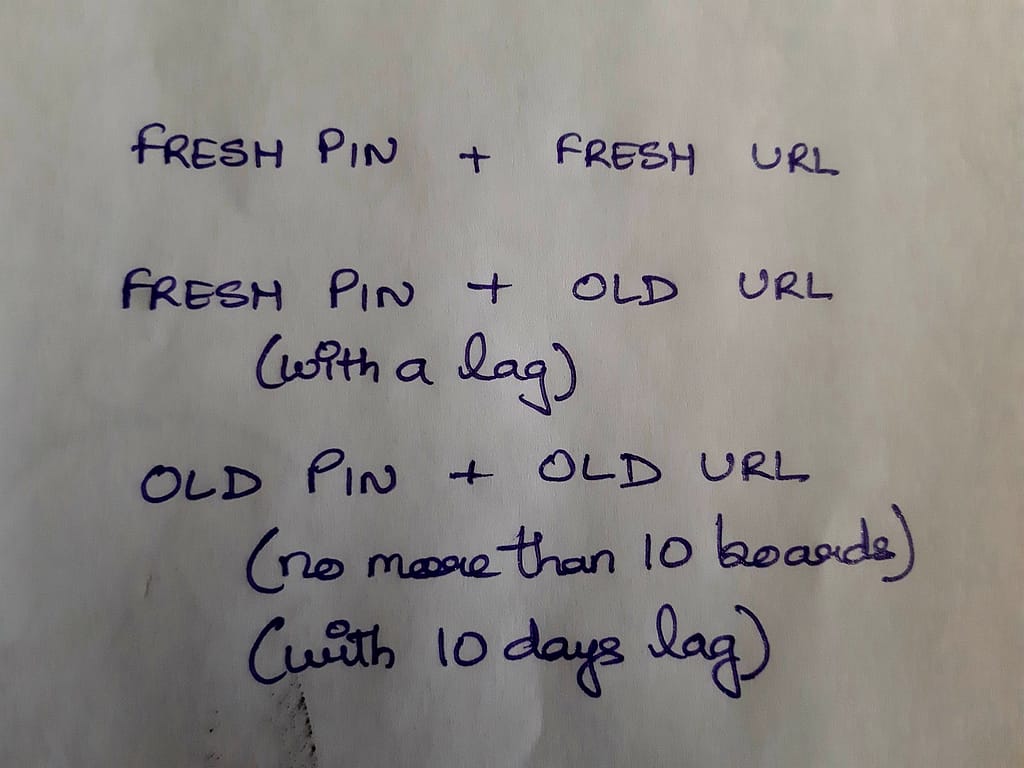 FRESH PIN + FRESH URL
FRESH PIN + OLD URL
(with a lag)
OLD PIN + OLD URL
(no more than 10 boards)
(with 10 days lag)